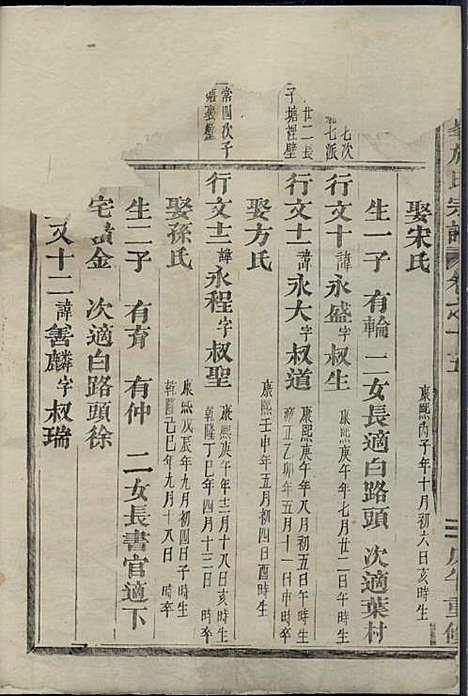 娶宋氏 康熙丙子年十月初六日亥時生
生一子 有輪 二女長適白路頭 次適葉村
行文十 諱永盛字叔生 康熙庚午年七月廿二日亥時生
行文十一 諱永大字叔道 康熙庚午年八月初五日午時生 乙卯年五月十一日申時卒
娶方氏 康熙壬申年五月初四日酉時生
行文十二 諱永程字叔聖 康熙庚午年十二月十八日亥時生 乾隆丁巳年四月十二日 時卒
娶孫氏 康熙戊辰年九月初四日子時生 乾隆己巳年九月十八日 時卒
生二子 有育 有仲 二女長書官適下
宅 金 次適白路頭徐
文十二 諱善麟字叔瑞
七次
七派
廿二長
子塘裡壁
常四次子